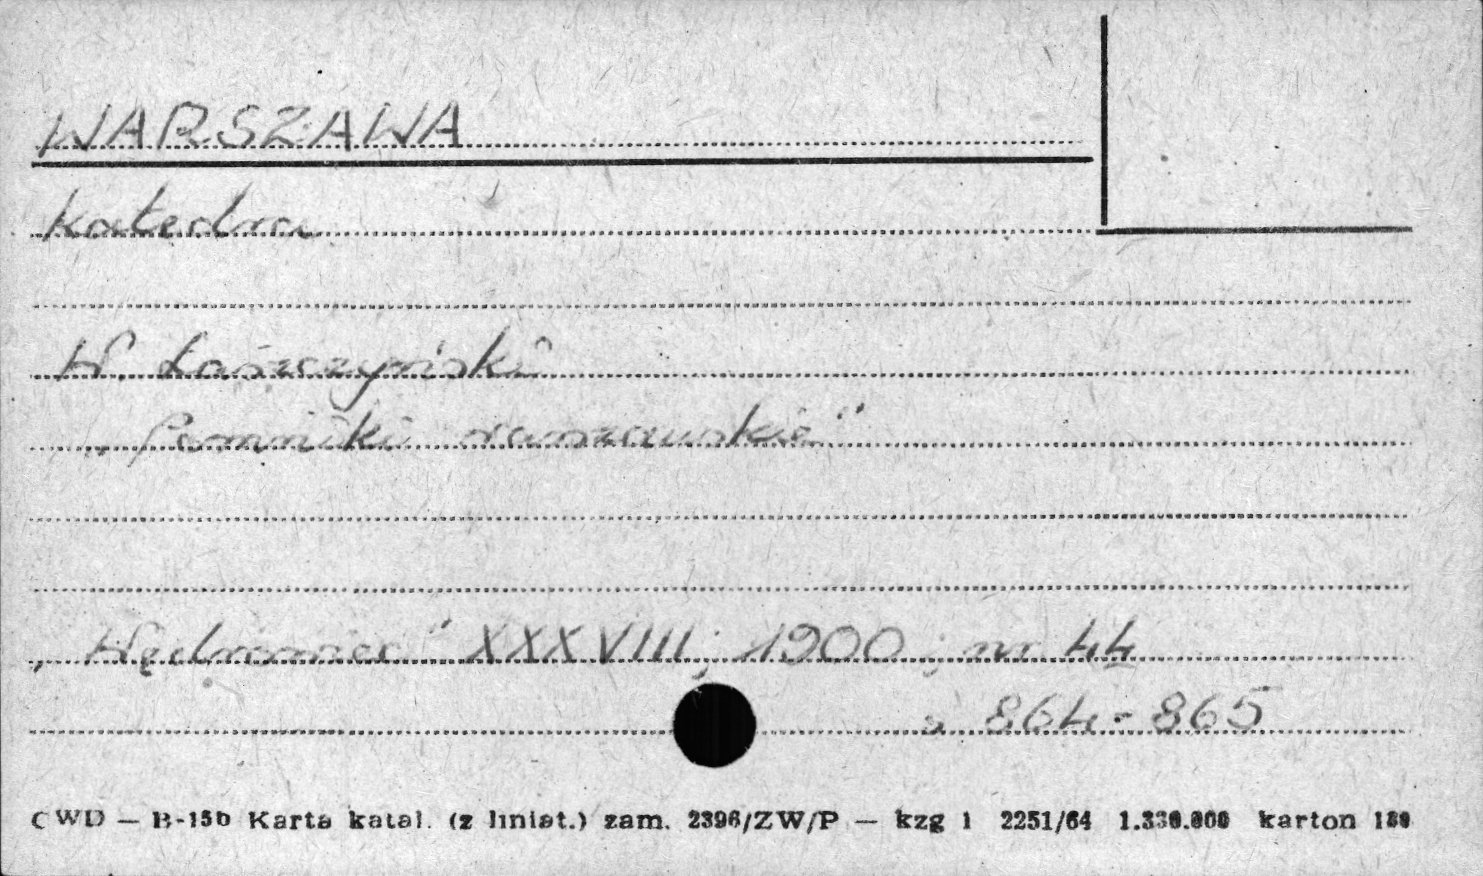 WARSZAWA
Katedra
W. Łaszczyński
„Pomniki warszawskie"
„Wędrowiec" XXXVIII; 1900; nr 44
s. 864-865
CWD — B-15b Karta katal. (z liniat.) zam. 2396/ZW/P — kzg 1 2251/64 1.330.000 karton 180